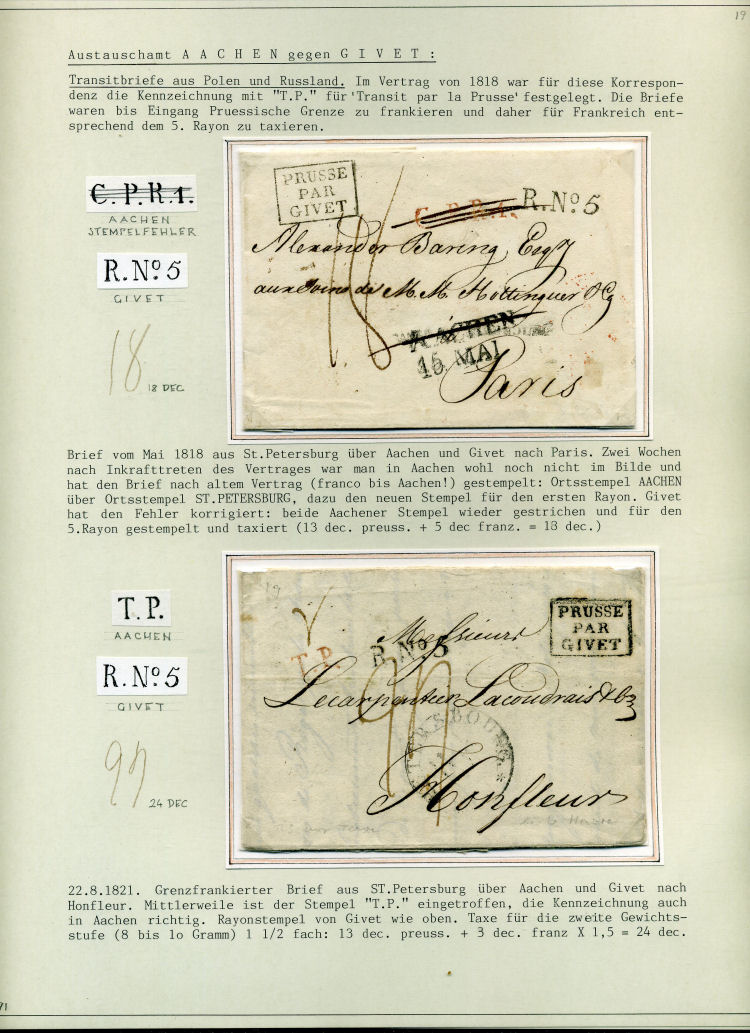 19
Austauschamt A A C H E N gegen G I V E T :
Transitbriefe aus Polen und Russland. Im Vertrag von 1818 war für diese Korrespon-
denz die Kennzeichnung mit "T.P." für 'Transit par la Prusse' festgelegt. Die Briefe
waren bis Eingang Pruessische Grenze zu frankieren und daher für Frankreich ent-
sprechend dem 5. Rayon zu taxieren.
C.P.R.1.
AACHEN
STEMPELFEHLER
R.No.5
GIVET
18
18 DEC
PRUSSE
PAR
GIVET
C.P.R.1.
R.No.5
18
Alexander Baring Esqr
aux soins de M.M. Hottinguer & Co
AACHEN
15 MAI
Paris
Brief vom Mai 1818 aus St.Petersburg über Aachen und Givet nach Paris. Zwei Wochen
nach Inkrafttreten des Vertrages war man in Aachen wohl noch nicht im Bilde und
hat den Brief nach altem Vertrag (franco bis Aachen!) gestempelt: Ortsstempel AACHEN
über Ortsstempel ST.PETERSBURG, dazu den neuen Stempel für den ersten Rayon. Givet
hat den Fehler korrigiert: beide Aachener Stempel wieder gestrichen und für den
5.Rayon gestempelt und taxiert (13 dec. preuss. + 5 dec franz. = 18 dec.)
T.P.
AACHEN
R.No.5
GIVET
24 DEC
19
PRUSSE
PAR
GIVET
T.P.
R.No.5
Messieurs
Lecarpentier Lacoudrais & Co
Honfleur
22.8.1821. Grenzfrankierter Brief aus ST.Petersburg über Aachen und Givet nach
Honfleur. Mittlerweile ist der Stempel "T.P." eingetroffen, die Kennzeichnung auch
in Aachen richtig. Rayonstempel von Givet wie oben. Taxe für die zweite Gewichts-
stufe (8 bis 1o Gramm) 1 1/2 fach: 13 dec. preuss. + 3 dec. franz X 1,5 = 24 dec.